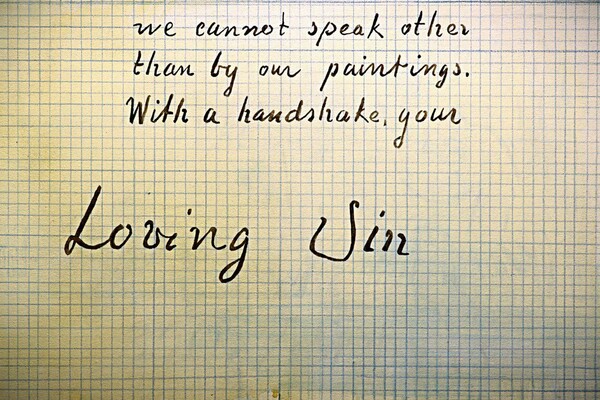 we cannot speak other
than by our paintings.
With a handshake, your
Loving Vin